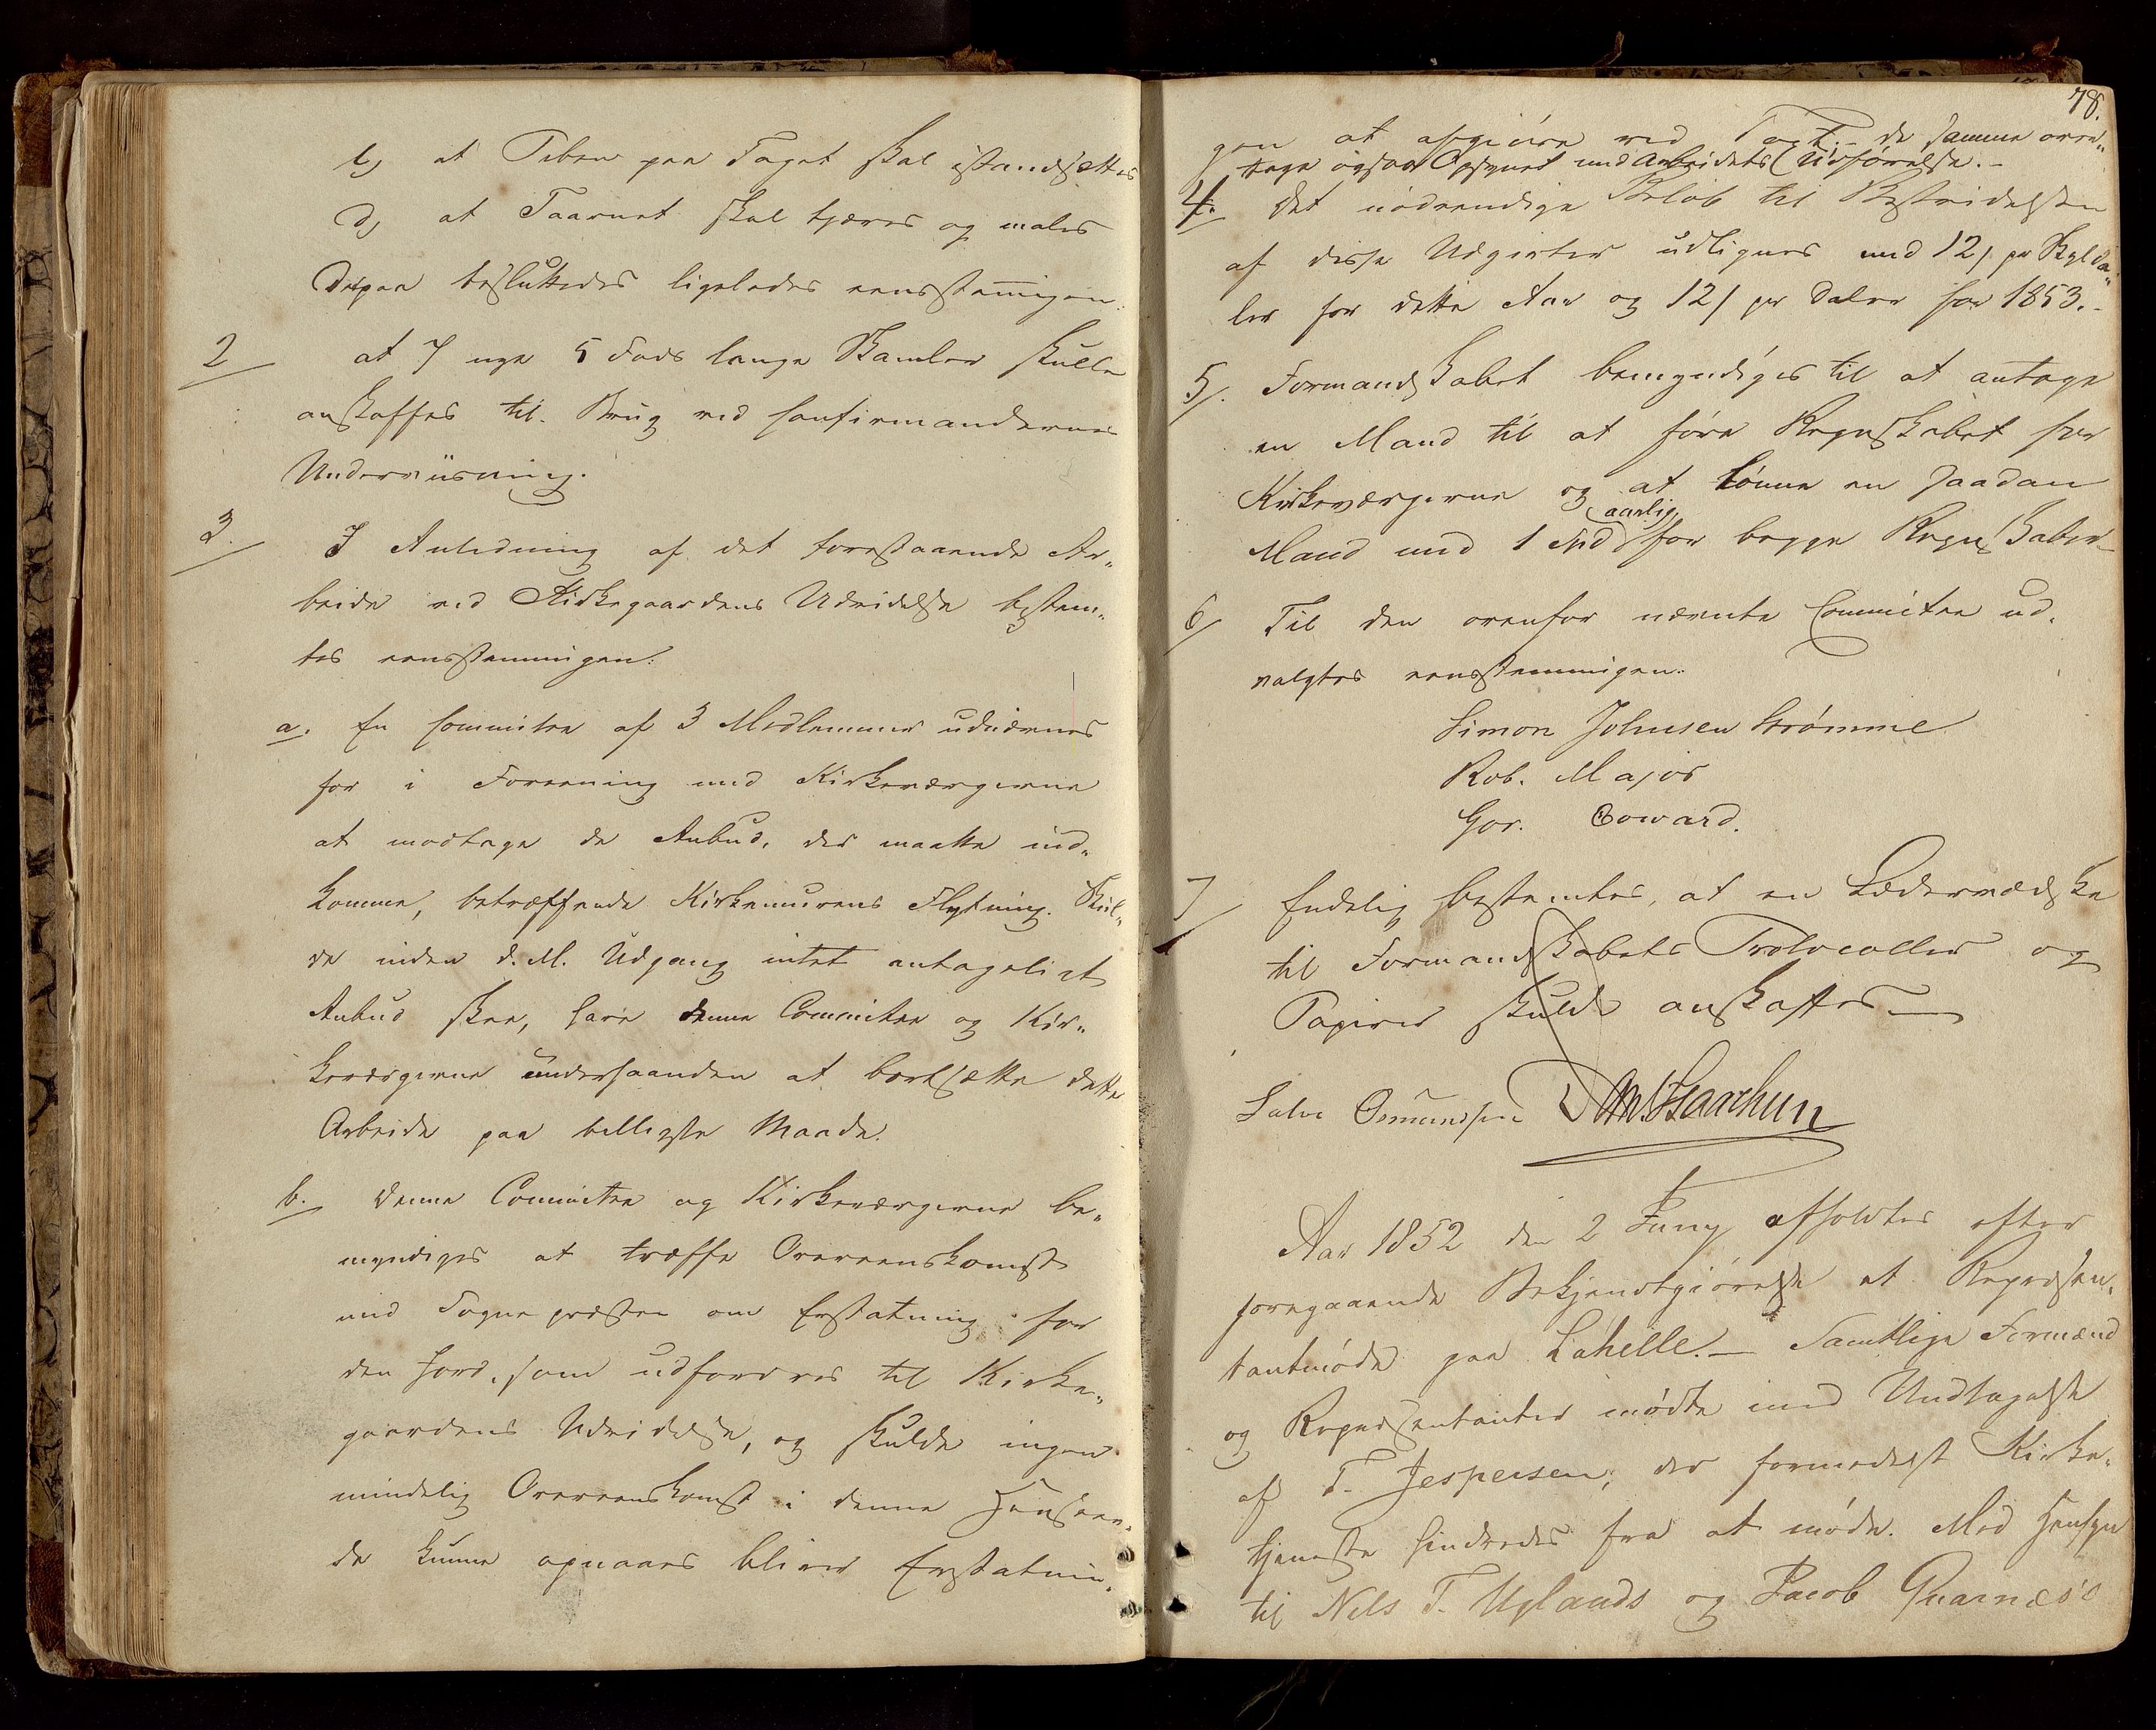 c) at Piben paa Taget skal istandsættes
d) at Taarnet skal tjæres og males
Derpaa besluttedes ligeledes eensstemmigen:
2 at 7 nye 5 Fods lange Skamler skulle
anskaffes til Brug ved Confirmandernes
Underviisning.
3. I Anledning af det forestaaende Ar„
beide ved Kirkegaardens Udvidelse bestem„
tes eensstemmigen:
a. En Committee af 3 Medlemmer udnævnes
for i Forening med Kirkeværgerne
at modtage de Anbud, der maatte ind„
komme, betræffende Kirkemurens Flytning. Skul„
de inden d. M. Udgang intet antageligt
Anbud skee, have denne Committee og Kir„
keværgerne underhaanden at bortsætte dette
Arbeide paa billigste Maade.
b. Denne Committee og Kirkeværgerne be„
myndiges at træffe Overeenskomst
med Sognepræsten om Erstatning for
den Jord, som udfordres til Kirke„
gaardens Udvidelse, og skulde ingen
mindelig Overeenskomst i denne Henseen„
de kunne opnaaes bliver Erstatnin„
78.
gen at afgjøre ved Taxt. – de samme over„
tage ogsaa Opsynet med Arbeidets Udførelse. –
4. Det nødvendige Beløb til Bestridelsen
af disse Udgivter udlignes med 12 s pr Skylda„
ler for dette Aar og 12 s pr Daler for 1853. –
5. Formandskabet bemyndiges til at antage
en Mand til at føre Regnskabet for
Kirkeværgerne og at lønne en saadan
aarlig
Mand med 1 Spd for begge Regnskaber –
6 Til den ovenfor nævnte Committee ud„
valgtes eensstemmigen:
Simon Johnsen Strømme
Rob. Major
Gov. Coward.
7 Endelig bestemtes, at en Lædervædske
til Formandskabets Protocoller og
Papirer skulde anskaffes –
Salve Osmundsen D M. Haarhun
Aar 1852 den 2 Juny afholdtes efter
foregaaende Bekjendtgjørelse et Repræsen„
tantmøde paa Lahelle. – Samtlige Formænd
og Repræsentanter mødte med Undtagelse
af T. Jespersen, der formedelst Kirke„
tjeneste hindredes fra at møde. Med Hensyn
til Nels T. Uglands og Jacob Qvarnæs's